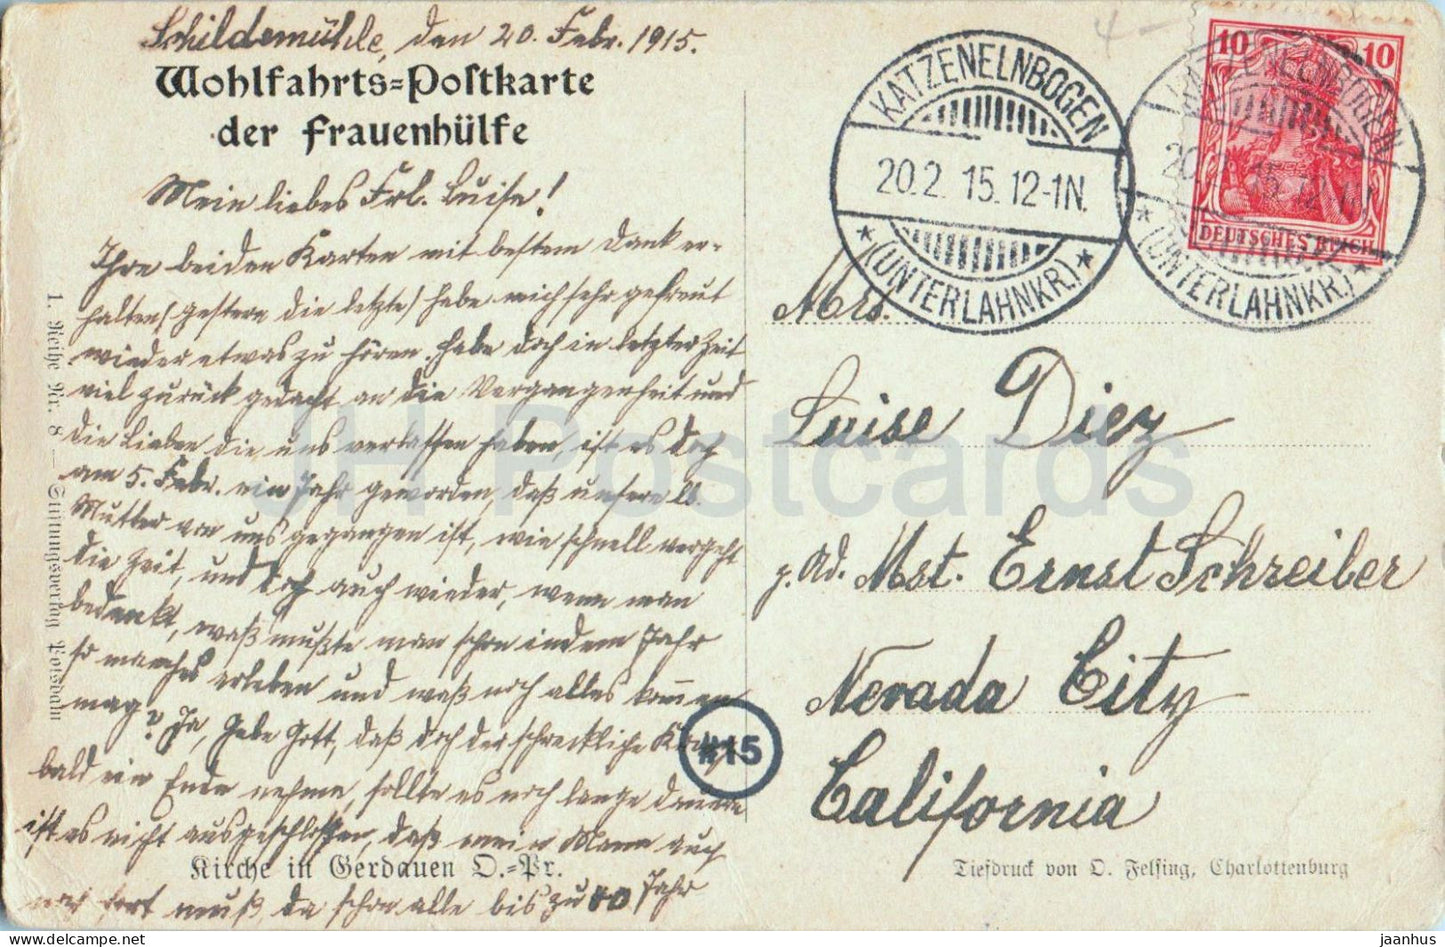 Schildemühle, den 20. Febr. 1915.
Wohlfahrts=Postkarte
der Frauenhülfe
Mein liebes Frl. Luise!
Ihre beiden Karten mit bestem Dank er-
halten (gestern die letzte) habe mich sehr gefreut
wieder etwas zu hören. Habe doch in letzter Zeit
viel zurück gedacht an die Vergangenheit und
die Lieben die uns verlassen haben, ist es doch
am 5. Febr. ein Jahr geworden, daß unsere lb.
Mutter von uns gegangen ist, wie schnell vergeht
die Zeit, und doch auch wieder, wenn man
bedenkt, was mußte man schon in dem Jahr
so manches erleben und was noch alles kommen
mag? Ja, gebe Gott, daß doch der schreckliche Krieg
bald ein Ende nehme, sollte es noch lange dauern
ist es nicht ausgeschlossen, daß mein Mann auch
noch fort muß, da schon alle bis zu 40 Jahr
Kirche in Gerdauen O.=Pr.
1. Reihe Nr. 8 — Stiftungsverlag Potsdam
KATZENELNBOGEN
20.2.15.12-1N.
*(UNTERLAHNKR.)*
10 10
DEUTSCHES REICH
KATZENELNBOGEN
20.2.15.12-1N.
*(UNTERLAHNKR.)*
Mrs.
Luise Diez
p. Ad. Mst. Ernst Schreiber
Nevada City
California
15
Tiefdruck von O. Felsing, Charlottenburg
JH Postcards
jaanhus — https://jhpostcards.com